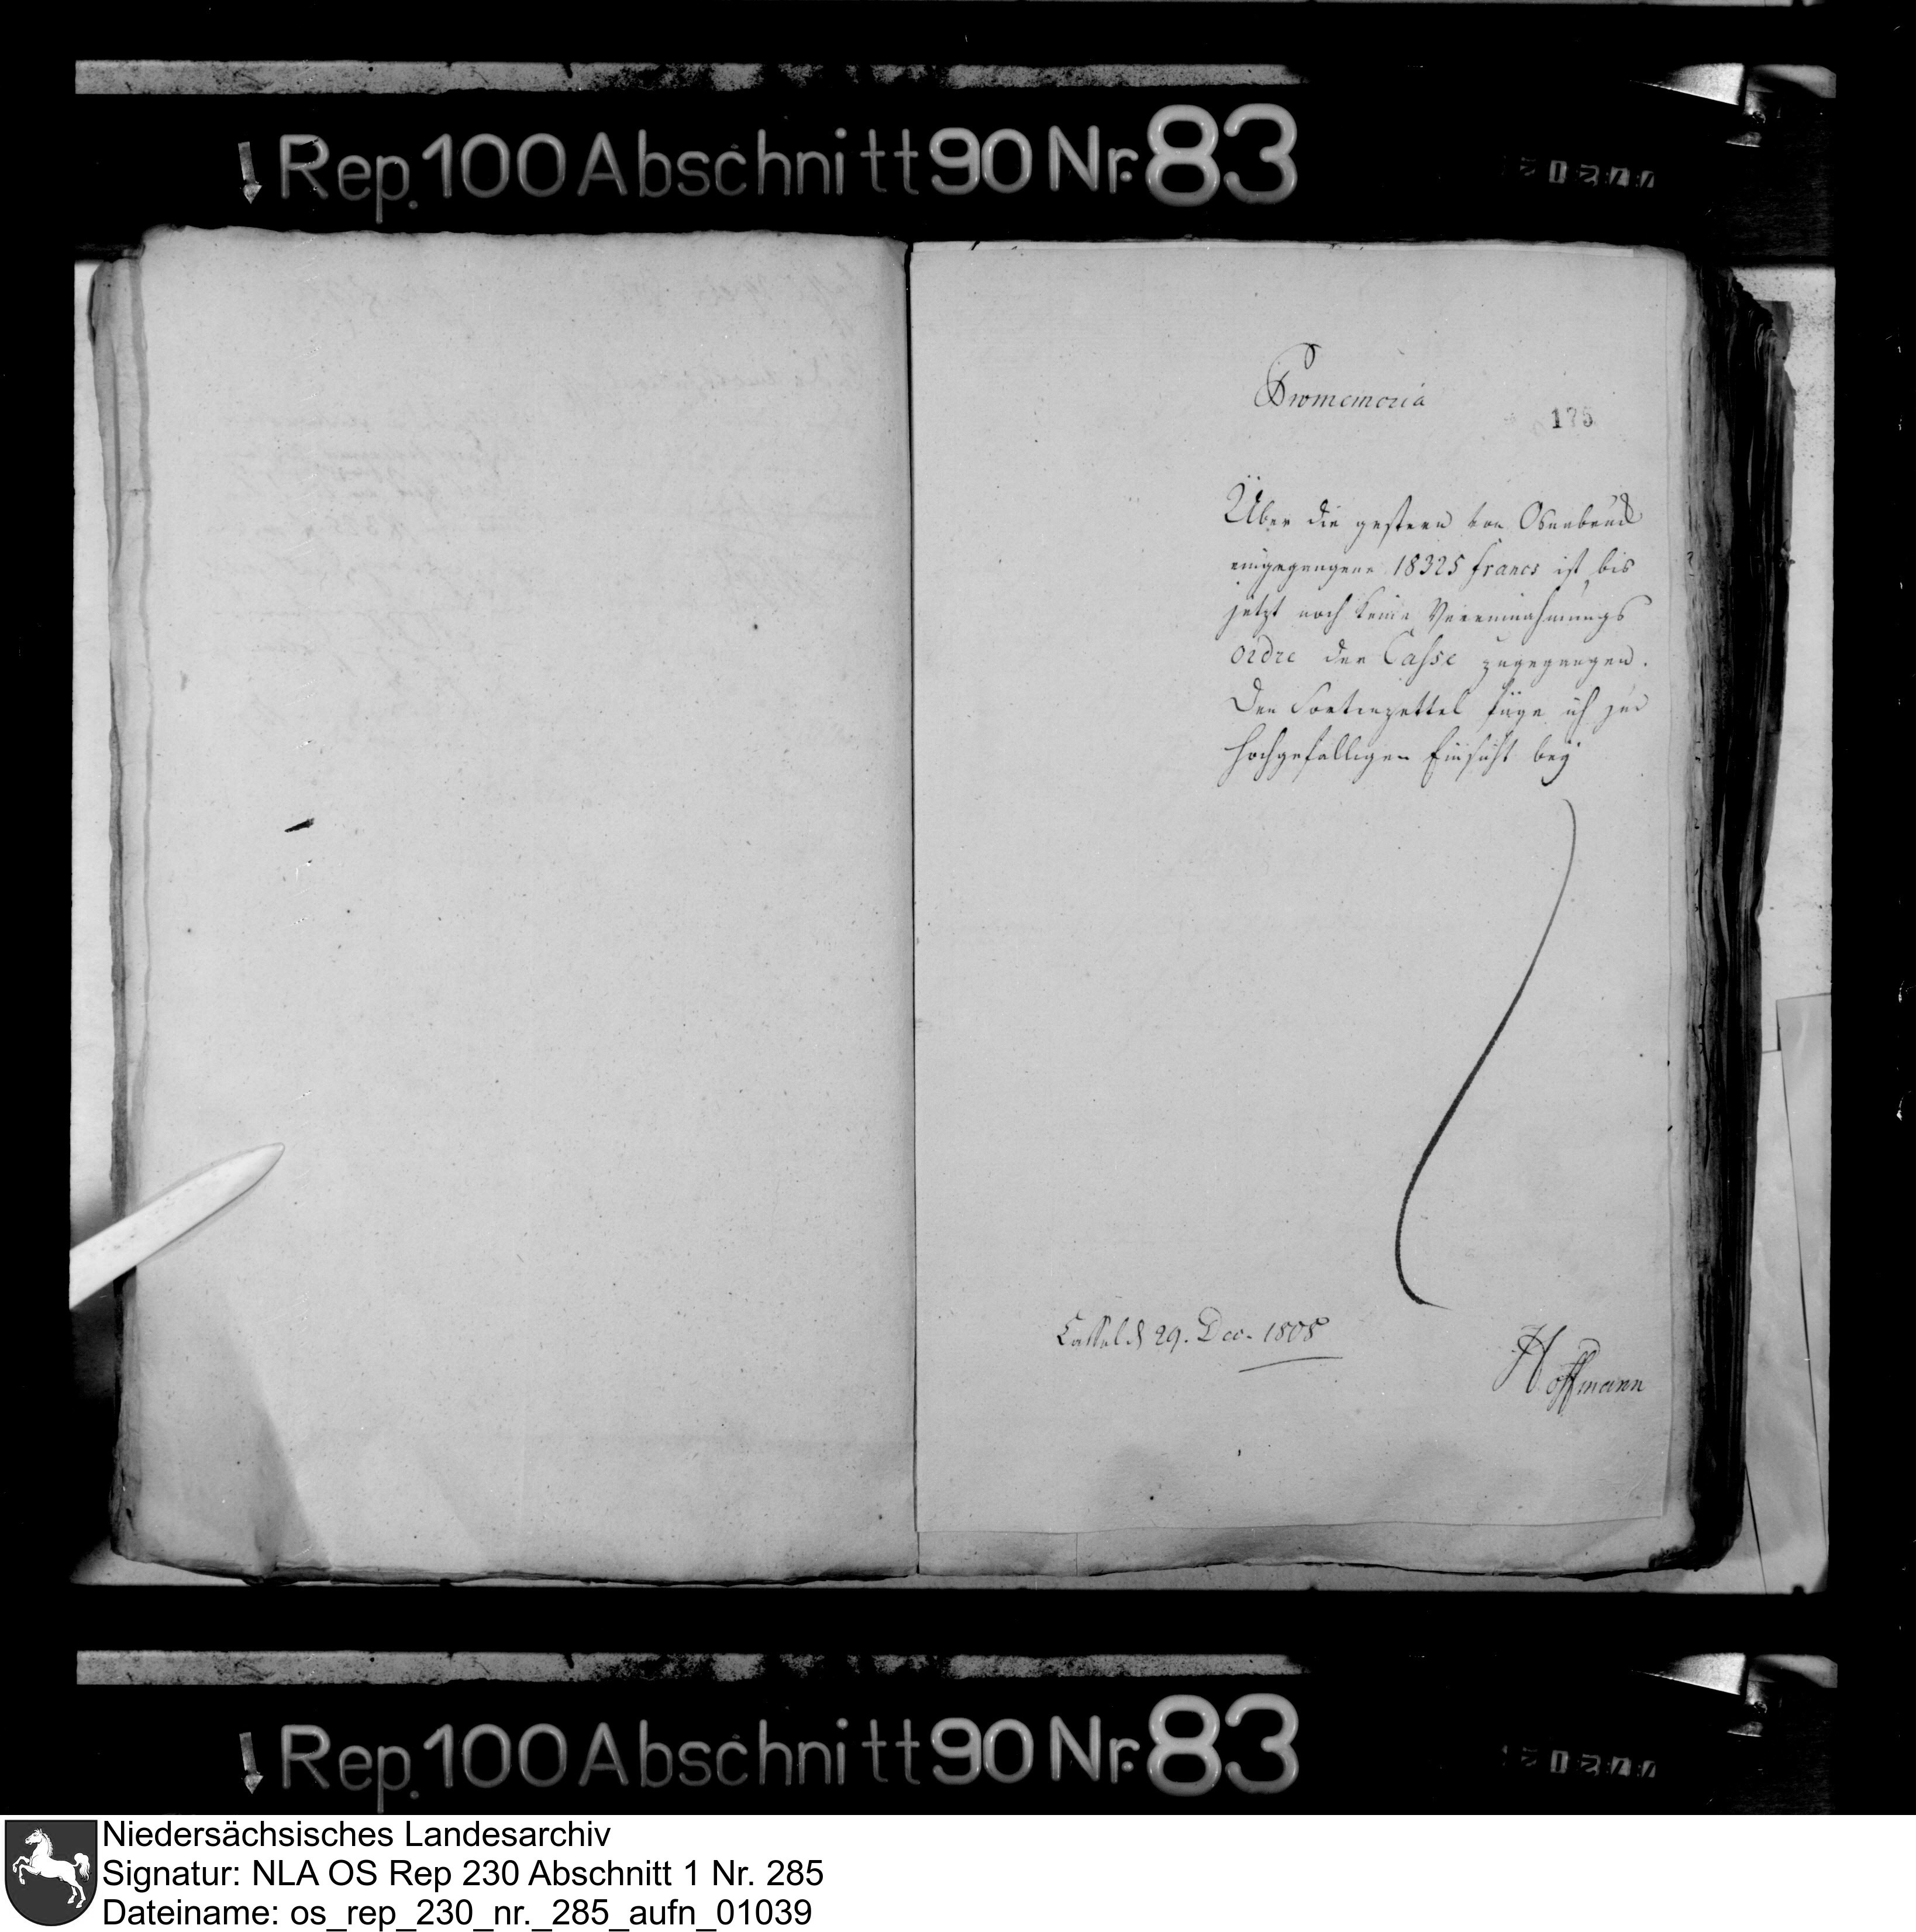 Rep. 100 Abschnitt 90 Nr. 83
Promemoria
175
Über die gestern von Osnabrück
eingegangene 18325 francs ist bis
jetzt noch keine Vereinnahmungs
ordre der Casse zugegangen.
Den Sortenzettel füge ich zur
hochgefälligen Einsicht bey
Cassel d 29. Dec. 1808
Hoffmann
Rep. 100 Abschnitt 90 Nr. 83
Niedersächsisches Landesarchiv
Signatur: NLA OS Rep 230 Abschnitt 1 Nr. 285
Dateiname: os_rep_230_nr._285_aufn_01039